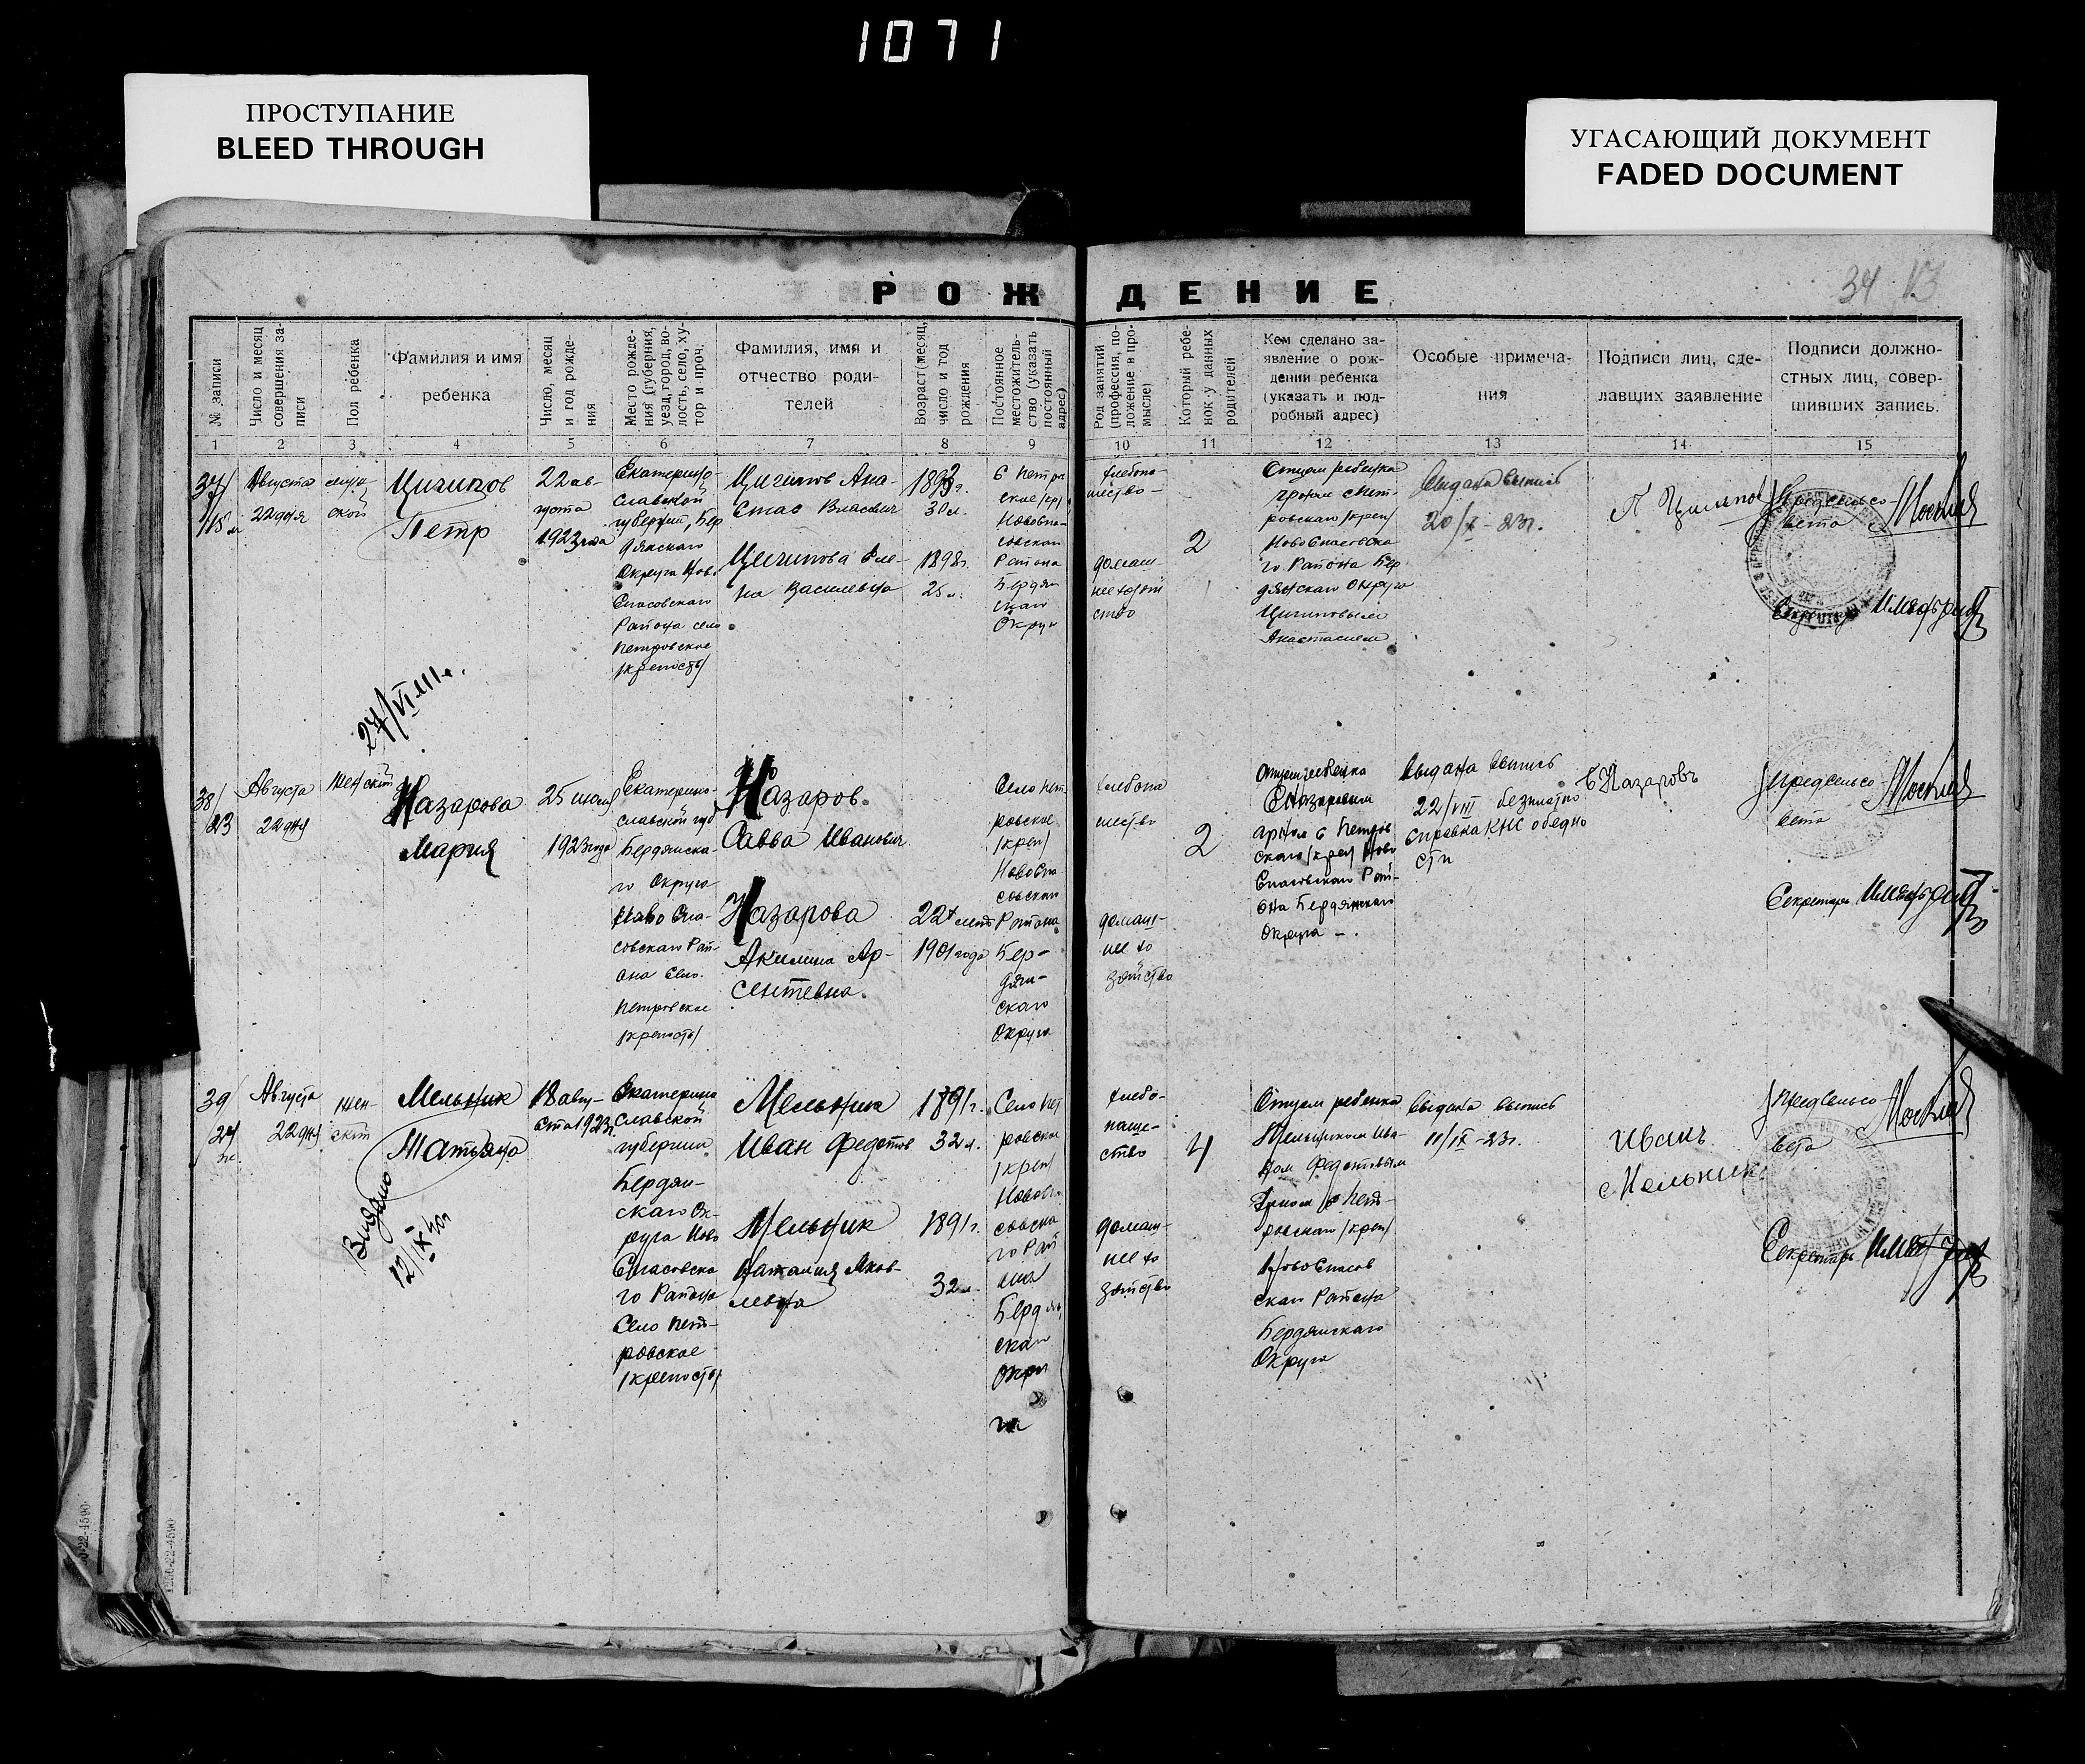 1071
ПРОСТУПАНИЕ
BLEED THROUGH
УГАСАЮЩИЙ ДОКУМЕНТ
FADED DOCUMENT
34
РОЖДЕНИЕ
№ записи
Число и месяц совершения записи
Пол ребенка
Фамилия и имя
ребенка
Число, месяц и год рождения
Место рождения (губерния, уезд, город, волость, село, хутор и проч.
Фамилия, имя и
отчество роди-
телей
Возраст (месяц, число и год рождения
Постоянное местожительство (указать постоянный адрес)
Род занятий (профессия, положение в промысле)
Который ребенок у данных родителей
Кем сделано за-
явление о рож-
дении ребенка
(указать и под-
робный адрес)
Особые примеча-
ния
Подписи лиц, сде-
лавших заявление
Подписи должно-
стных лиц, совер-
шивших запись.
1 2 3 4 5 6 7 8 9 10 11 12 13 14 15
37/
Августа
22 дня
Цигипов
Петр
22 ав-
густа
1923 года
Екатерино-
славской
губернии, Бер
дянскаго
Округа Ново
Спасовскаго
Района село
Петровское
/крепость/
Цигипов Ана-
стас Власович
Цигипова Еле-
на Васильевна
30 л.
1898г.
25 л.
с Петров
Района
Бердян
скаго
Округа
хлебопа-
шество
домаш-
нее хозяй
ство
2
Отцом ребенка
Ново Спасовска
го Района Бер
дянскаго Округа
Цигиповым
Анастасием
Выдана выпись
20/X-23г.
Предсельсо-
вета
Секретарь
27/VI
38/
23
Августа
22 дня
Женский
Назарова
Мария
25 июля
1923 года
Екатерино-
славской губ
Бердянска-
го Округа
Ново Спа-
совскаго Рай-
она Село
Петровское
/крепость/
Назаров
Савва Иванович
Назарова
Акилина Ар-
сентевна.
22 лет
1901 года
Село Пет
ровское
/креп/
НовоСпа-
совскаго
Района
Бер-
дян-
скаго
Округа
хлебопа
шество
домаш-
нее хо
зяйство
2
Отцом ребенка
С Назаровым
Спасовскаго Рай-
она Бердянскаго
Округа
Выдана выпись
22/VIII безплатно
справка КНС о бедно
сти
С Назаровъ
Предсельсо-
вета
Секретарь
39/
24
Августа
22 дня
Жен-
ский
Мельник
Татьяна
18 авгу-
ста 1923г.
Екатерино
славской
губернии
Бердян-
скаго Ок-
руга Ново
Спасовска
го Района
Село Пет-
ровское
/крепость/
Мельник
Иван Федотов
Мельник
Наталия Яков-
левна
1891г.
32 л.
1891г.
32 л.
Село Пет
ровское
/креп/
Новоспа
совска
го Рай
она
Бердян
скаго
Окру
га
хлебо-
паше-
ство
домаш-
нее хо
зяйство
4
Отцом ребенка
Мельником Ива-
ном Федотовым
ровскаго /креп/
НовоСпасов
скаго Района
Бердянскаго
Округа
Выдана выпись
11/IX-23г.
Иванъ
Мельник
Предсельсо-
вета
Секретарь
Видано
12/IX 40г